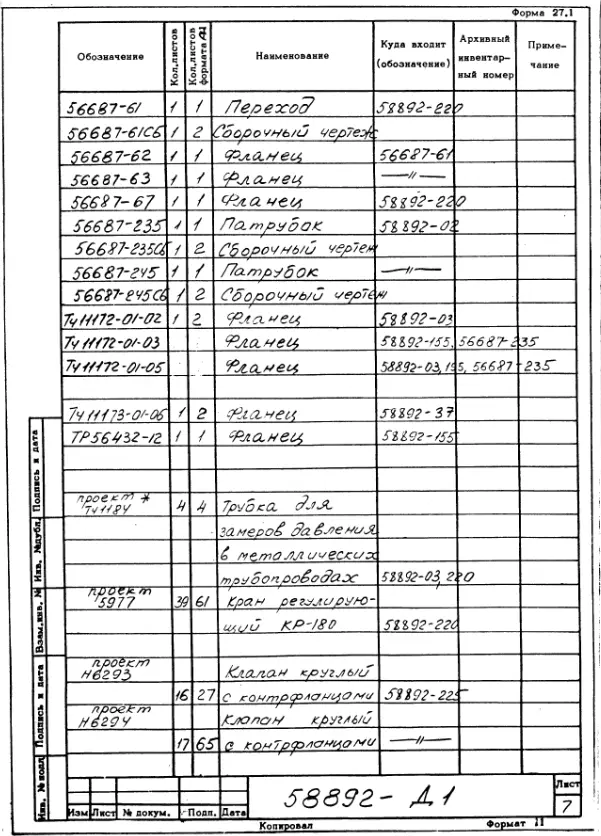 Форма 27.1
Обозначение Кол.листов Кол.листов формата А4 Наименование Куда входит (обозначение) Архивный инвентарный номер Примечание
56687-61 1 1 Переход 58892-220
56687-61СБ 1 2 Сборочный чертеж
56687-62 1 1 Фланец 56687-61
56687-63 1 1 Фланец —//—
56687-67 1 1 Фланец 58892-220
56687-235 1 1 Патрубок 58892-02
56687-235СБ 1 2 Сборочный чертеж
56687-245 1 1 Патрубок —//—
56687-245СБ 1 2 Сборочный чертеж
Т411172-01-02 1 2 Фланец 58892-03
Т411172-01-03 Фланец 58892-155, 56687-235
Т411172-01-05 Фланец 58892-03, 195, 56687-235
Т411173-01-06 1 2 Фланец 58892-37
ТР56432-12 1 1 Фланец 58892-155
проект *
Т41184 4 4 Трубка для
замеров давления
в металлических
трубопроводах 58892-03, 220
проект
5977 39 61 Кран регулирую-
щий КР-180 58892-220
проект
Н6293 Клапан круглый
16 27 с контрфланцами 58892-225
проект
Н6294 Клапан круглый
17 65 с контрфланцами —//—
Инв. № подл. Подпись и дата Взам.инв. № Инв. №дубл. Подпись и дата
58892-Д1
Лист
7
Изм Лист № докум. Подп. Дата
Копировал Формат 11